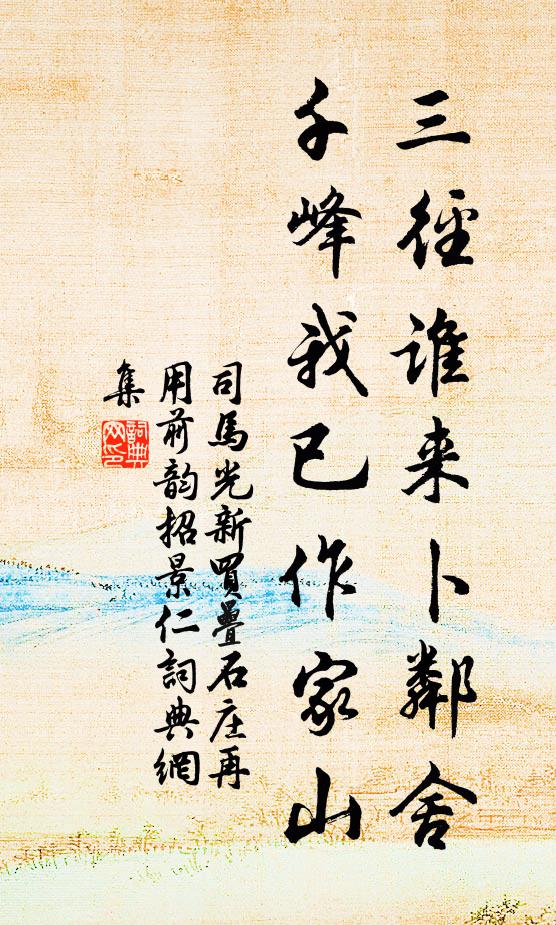 三徑谁来卜鄰舍
千峰我已作家山
司馬光新買疊石庄再
用前韵招景仁詞典網
集
詞典网印